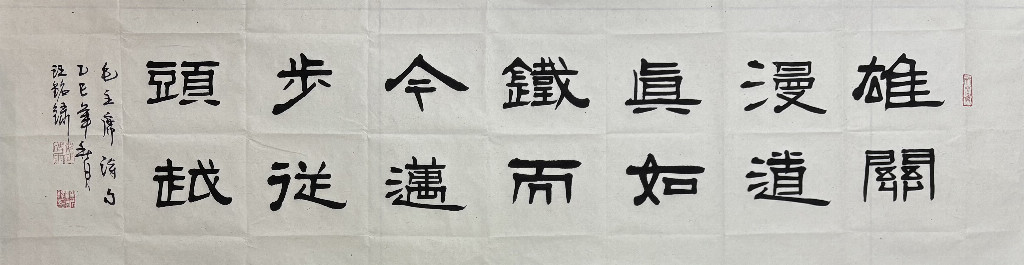 雄關
漫道
眞如
鐵而
今邁
步從
頭越
毛主席詩句
乙巳年月
銘